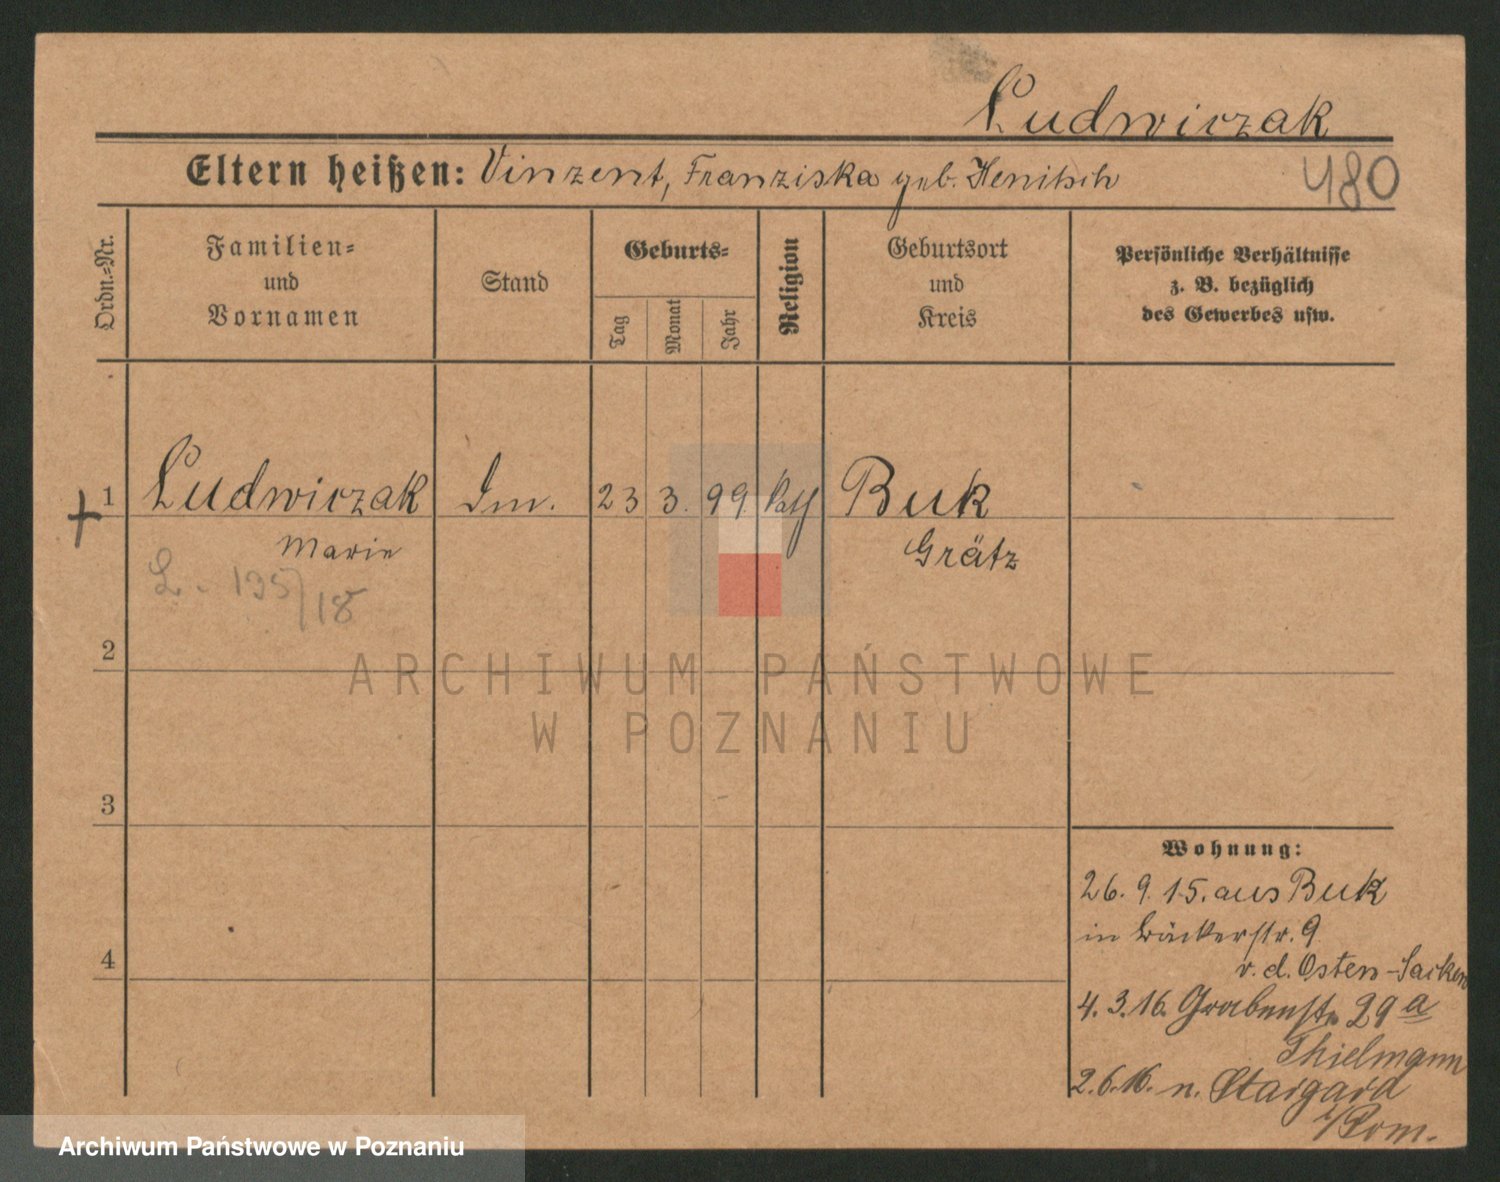 Ludwiczak
Eltern heißen: Vinzent, Franziska geb. Henitsch
480
Ordn.=Nr.
Familien=
und
Vornamen
Stand
Geburts=
Tag
Monat
Jahr
Religion
Geburtsort
und
Kreis
Persönliche Verhältnisse
z. B. bezüglich
des Gewerbes usw.
+ 1 Ludwiczak 23 3. 99 kath Buk
Marie Grätz
L. 135/18
2
ARCHIWUM PAŃSTWOWE
W POZNANIU
3
Wohnung:
26. 9. 15. aus Buk
in Bäckerstr. 9
v. d. Osten-Sacken
4
4. 3. 16. Grabenstr. 29 a
Thielmann
2. 6. 16. n. Stargard
i/Pom.
Archiwum Państwowe w Poznaniu